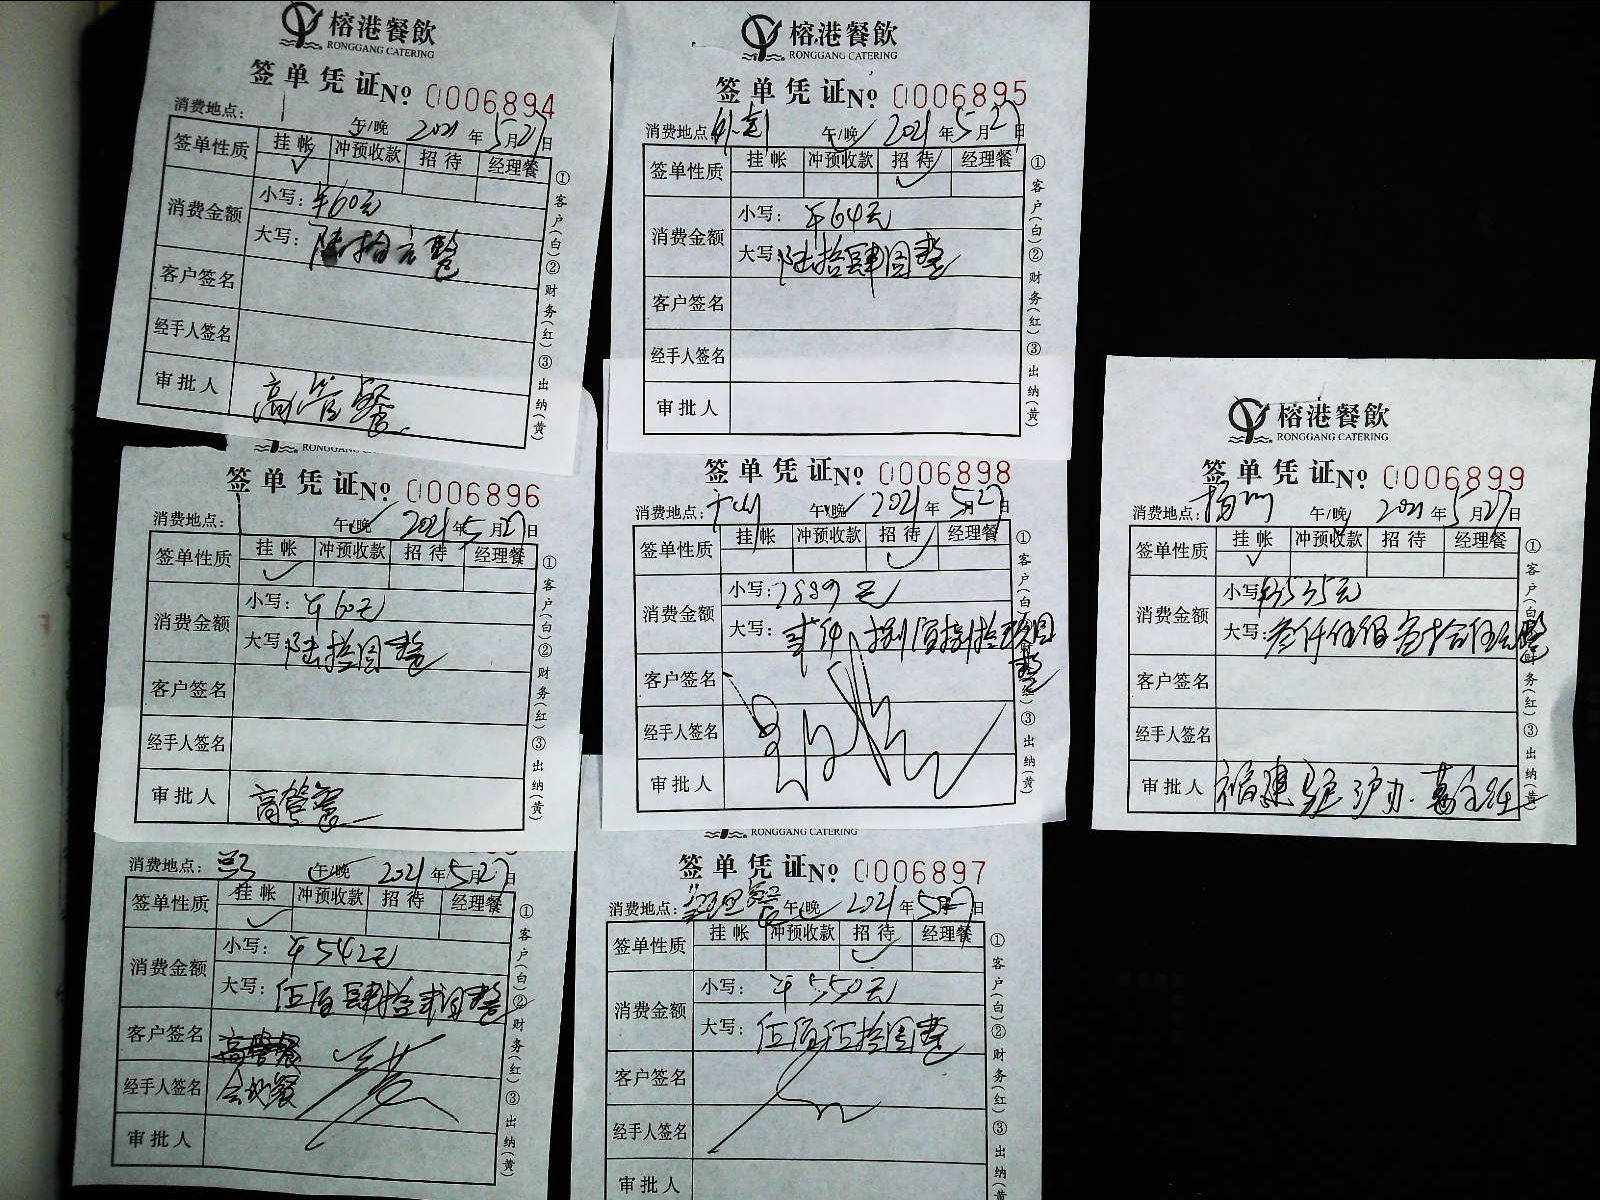 榕港餐飲
RONGGANG CATERING
签单凭证No 0006894
消费地点： 午/晚 2021年5月27日
签单性质 挂帐 冲预收款 招待 经理餐
消费金额 小写：¥60元
大写：陆拾元整
客户签名
经手人签名
审批人 高管餐
①客户(白)②财务(红)③出纳(黄)
榕港餐飲
RONGGANG CATERING
签单凭证No 0006895
消费地点：外卖 午/晚 2021年5月27日
签单性质 挂帐 冲预收款 招待 经理餐
消费金额 小写：¥64元
大写：陆拾肆圆整
客户签名
经手人签名
审批人
①客户(白)②财务(红)③出纳(黄)
RONGGANG CATERING
签单凭证No 0006896
消费地点： 午/晚 2021年5月27日
签单性质 挂帐 冲预收款 招待 经理餐
消费金额 小写：¥60元
大写：陆拾圆整
客户签名
经手人签名
审批人 高管餐
①客户(白)②财务(红)③出纳(黄)
签单凭证No 0006898
消费地点： 午/晚 2021年5月27日
签单性质 挂帐 冲预收款 招待 经理餐
消费金额 小写： 元
大写：贰仟捌佰捌拾 圆整
客户签名
经手人签名
审批人
①客户(白) ③出纳(黄)
榕港餐飲
RONGGANG CATERING
签单凭证No 0006899
消费地点：扬州 午/晚 2021年5月27日
签单性质 挂帐 冲预收款 招待 经理餐
消费金额 小写¥3535元
大写：叁仟伍佰叁拾伍元整
客户签名
经手人签名
审批人 福建驻沪办.葛主任
①客户(白)②财务(红)③出纳(黄)
消费地点： 午/晚 2021年5月27日
签单性质 挂帐 冲预收款 招待 经理餐
消费金额 小写：¥542元
大写：伍佰肆拾贰圆整
客户签名
经手人签名
审批人
①客户(白)②财务(红)③出纳(黄)
RONGGANG CATERING
签单凭证No 0006897
消费地点： 午/晚 2021年5月27日
签单性质 挂帐 冲预收款 招待 经理餐
消费金额 小写：¥550元
大写：伍佰伍拾圆整
客户签名
经手人签名
审批人
①客户(白)②财务(红)③出纳(黄)